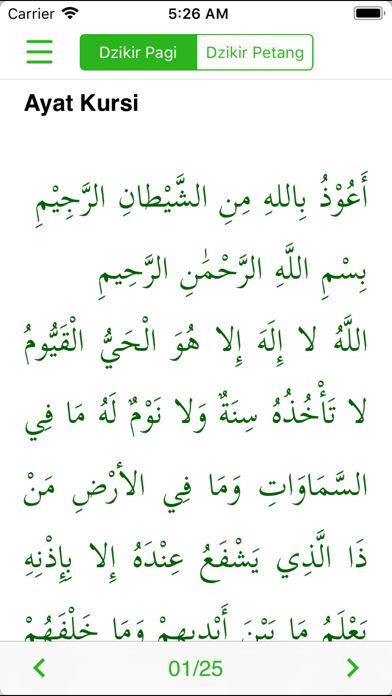 Carrier 5:26 AM
Dzikir Pagi Dzikir Petang
Ayat Kursi
أَعُوْذُ بِاللهِ مِنِ الشَّيْطانِ الرَّجِيْمِ
بِسْمِ اللَّهِ الرَّحْمَٰنِ الرَّحِيمِ
اللَّهُ لا إِلَهَ إِلا هُوَ الْحَيُّ الْقَيُّومُ
لا تَأْخُذُهُ سِنَةٌ وَلا نَوْمٌ لَهُ مَا فِي
السَّمَاوَاتِ وَمَا فِي الأرْضِ مَنْ
ذَا الَّذِي يَشْفَعُ عِنْدَهُ إِلا بِإِذْنِهِ
يَعْلَمُ مَا بَيْنَ أَيْدِيهِمْ وَمَا خَلْفَهُمْ
01/25